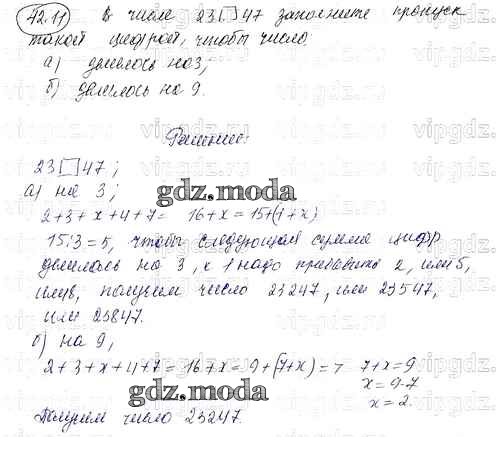 42.11 В числе 23□47 заполните пропуск
такой цифрой, чтобы число:
а) делилось на 3;
б) делилось на 9.
Решение:
23□47;
а) на 3;
2+3+x+4+7= 16+x=15+(1+x)
15:3=5, чтобы следующая сумма цифр
делилось на 3, к 1 надо прибавить 2, или 5,
или 8, получим число 23247, или 23547,
или 23847.
б) на 9,
2+3+x+4+7=16+x=9+(7+x)=7 7+x=9
x=9-7
x=2.
Получим число 23247.
gdz.moda
gdz.moda
vipgdz.ru